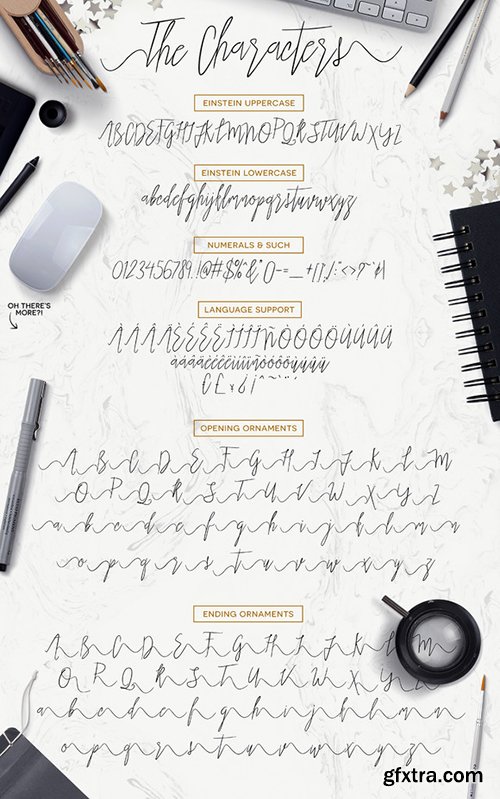 The Characters
EINSTEIN UPPERCASE
ABCDEFGHIJKLMNOPQRSTUVWXYZ
EINSTEIN LOWERCASE
abcdefghijklmnopqrstuvwxyz
NUMERALS & SUCH
LANGUAGE SUPPORT
OH THERE'S
MORE?!
OPENING ORNAMENTS
A B C D E F G H I J K L M
N O P Q R S T U V W X Y Z
a b c d e f g h i j k l m n
o p q r s t u v w x y z
ENDING ORNAMENTS
A B C D E F G H I J K L M
N O P Q R S T U V W X Y Z
a b c d e f g h i j k l m n
o p q r s t u v w x y z
gfxtra.com